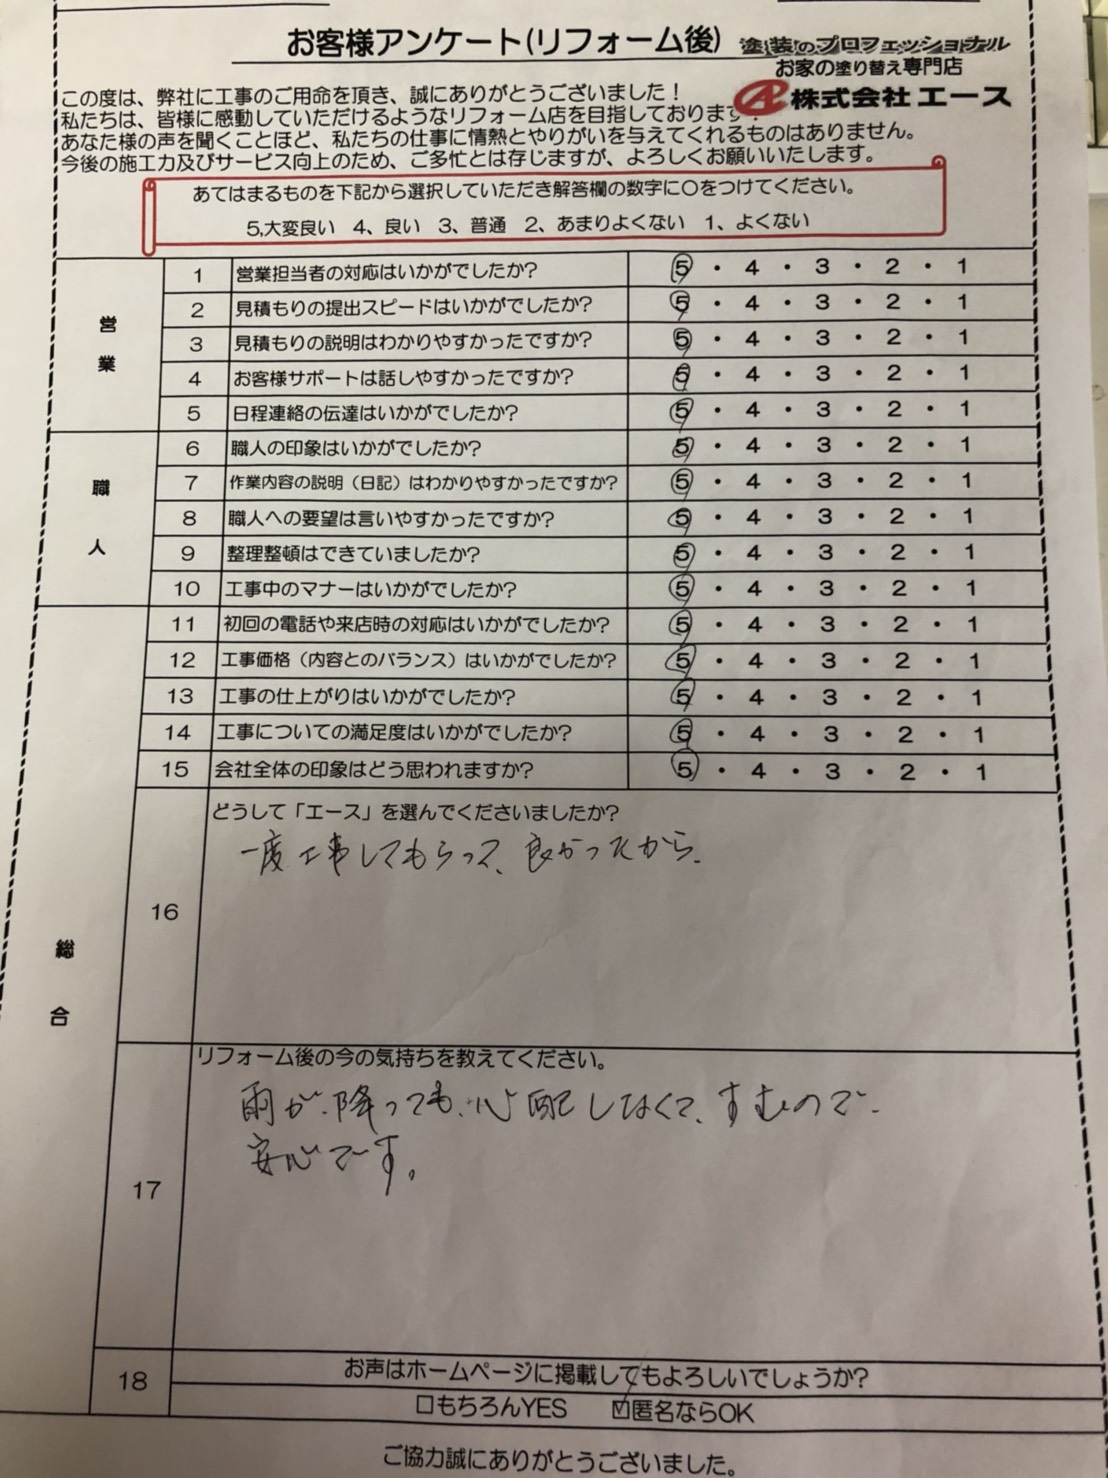 お客様アンケート(リフォーム後)
塗装のプロフェッショナル
お家の塗り替え専門店
株式会社エース
この度は、弊社に工事のご用命を頂き、誠にありがとうございました！
私たちは、皆様に感動していただけるようなリフォーム店を目指しております！
あなた様の声を聞くことほど、私たちの仕事に情熱とやりがいを与えてくれるものはありません。
今後の施工力及びサービス向上のため、ご多忙とは存じますが、よろしくお願いいたします。
あてはまるものを下記から選択していただき解答欄の数字に〇をつけてください。
5,大変良い 4、良い 3、普通 2、あまりよくない 1、よくない
営業
1 営業担当者の対応はいかがでしたか? 5・4・3・2・1
2 見積もりの提出スピードはいかがでしたか? 5・4・3・2・1
3 見積もりの説明はわかりやすかったですか? 5・4・3・2・1
4 お客様サポートは話しやすかったですか? 5・4・3・2・1
5 日程連絡の伝達はいかがでしたか? 5・4・3・2・1
職人
6 職人の印象はいかがでしたか? 5・4・3・2・1
7 作業内容の説明（日記）はわかりやすかったですか? 5・4・3・2・1
8 職人への要望は言いやすかったですか? 5・4・3・2・1
9 整理整頓はできていましたか? 5・4・3・2・1
10 工事中のマナーはいかがでしたか? 5・4・3・2・1
総合
11 初回の電話や来店時の対応はいかがでしたか? 5・4・3・2・1
12 工事価格（内容とのバランス）はいかがでしたか? 5・4・3・2・1
13 工事の仕上がりはいかがでしたか? 5・4・3・2・1
14 工事についての満足度はいかがでしたか? 5・4・3・2・1
15 会社全体の印象はどう思われますか? 5・4・3・2・1
16 どうして「エース」を選んでくださいましたか?
一度工事してもらって、良かったから。
17 リフォーム後の今の気持ちを教えてください。
雨が、降っても、心配しなくて、すむので、
安心です。
18 お声はホームページに掲載してもよろしいでしょうか?
□もちろんYES ☑匿名ならOK
ご協力誠にありがとうございました。